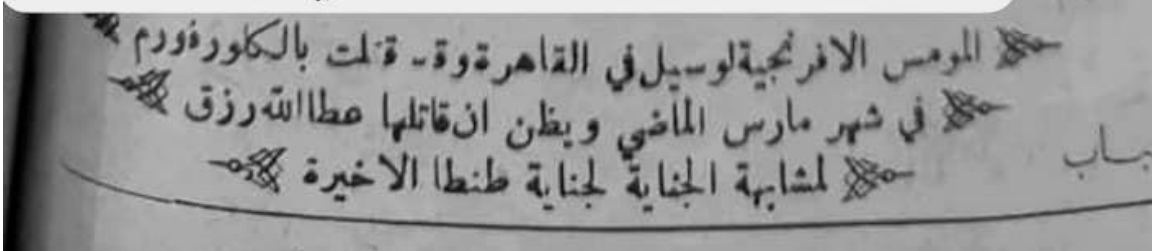 المومس الافرنجية لوسيل في القاهرة وقد قتلت بالكلوروفورم
في شهر مارس الماضي ويظن ان قاتلها عطا الله رزق
لمشابهة الجناية لجناية طنطا الاخيرة